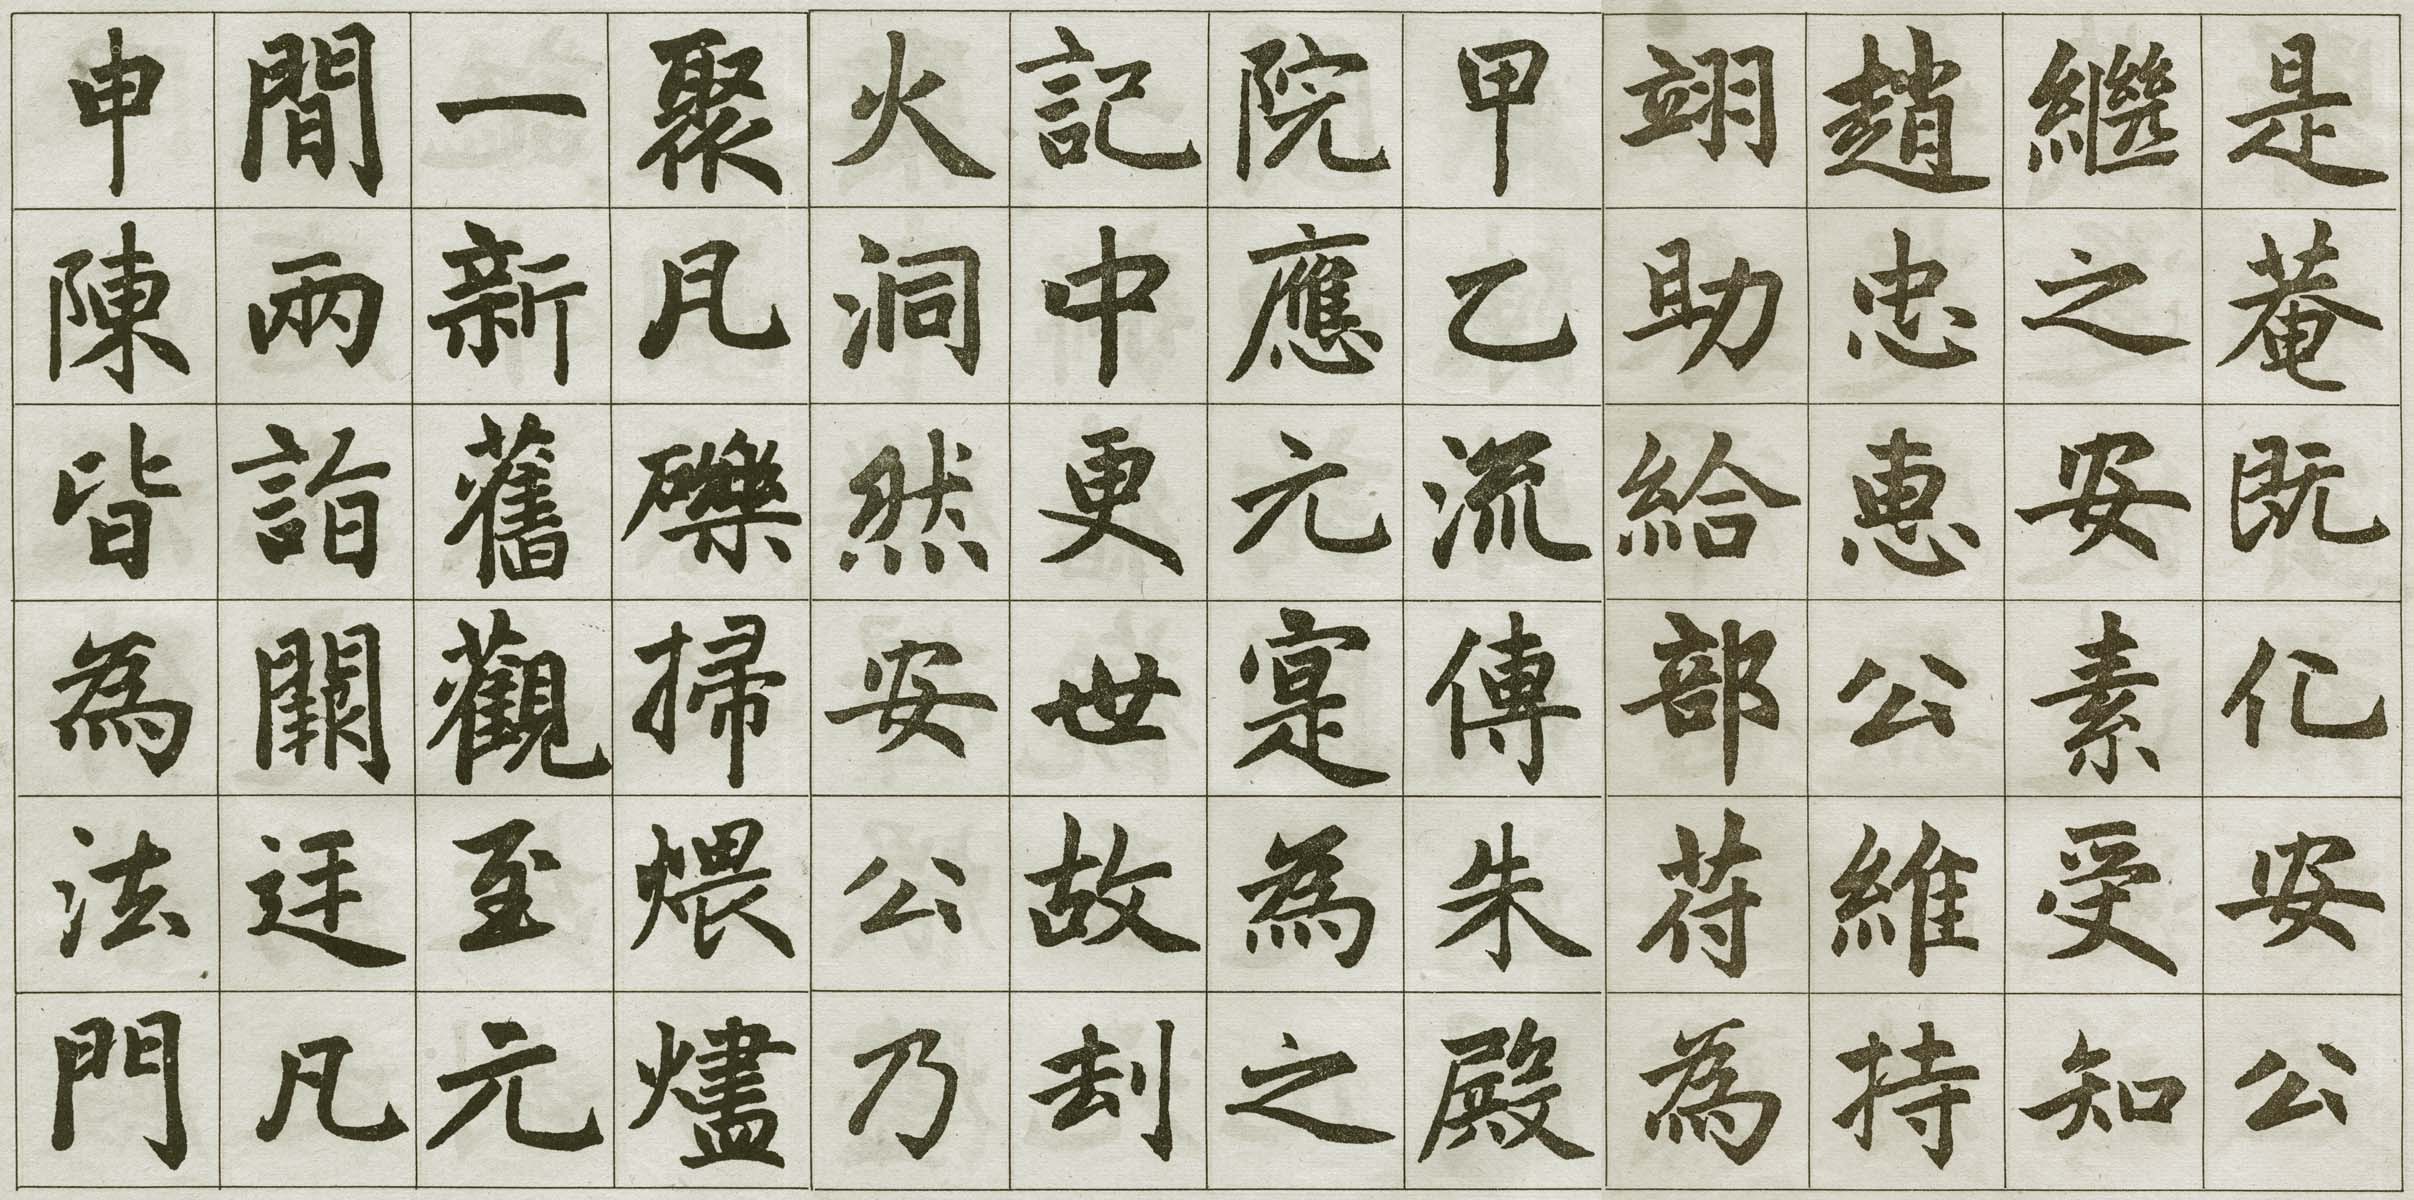 是菴既化安公
繼之安素受知
趙忠惠公維持
翊助給部苻為
甲乙流傳朱殿
院應元寔為之
記中更世故刦
火洞然安公乃
聚凡礫掃煨燼
一新舊觀至元
間兩詣闕迋凡
申陳皆為法門